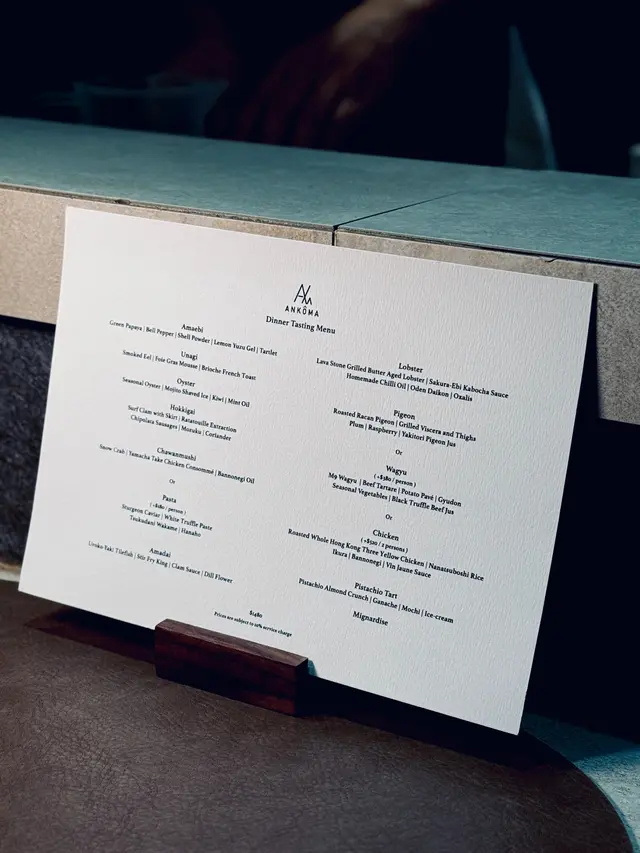 ANKÔMA
Dinner Tasting Menu
Amaebi
Green Papaya | Bell Pepper | Shell Powder | Lemon Yuzu Gel | Tartlet
Unagi
Smoked Eel | Foie Gras Mousse | Brioche French Toast
Oyster
Seasonal Oyster | Mojito Shaved Ice | Kiwi | Mint Oil
Hokkigai
Surf Clam with Skirt | Ratatouille Extraction
Chipolata Sausages | Mozuku | Coriander
Chawanmushi
Snow Crab | Yamacha Take Chicken Consommé | Bannonegi Oil
Or
Pasta
(+$180 / person)
Sturgeon Caviar | White Truffle Paste
Tsukudani Wakame | Hanaho
Amadai
Uroko Yaki Tilefish | Stir Fry King | Clam Sauce | Dill Flower
Lobster
Lava Stone Grilled Butter Aged Lobster | Sakura-Ebi Kabocha Sauce
Homemade Chilli Oil | Oden Daikon | Oxalis
Pigeon
Roasted Racan Pigeon | Grilled Viscera and Thighs
Plum | Raspberry | Yakitori Pigeon Jus
Or
Wagyu
(+$380 / person)
M9 Wagyu | Beef Tartare | Potato Pavé | Gyudon
Seasonal Vegetables | Black Truffle Beef Jus
Or
Chicken
(+$520 / 2 persons)
Roasted Whole Hong Kong Three Yellow Chicken | Nanatsuboshi Rice
Ikura | Bannonegi | Vin Jaune Sauce
Pistachio Tart
Pistachio Almond Crunch | Ganache | Mochi | Ice-cream
Mignardise
$1480
Prices are subject to 10% service charge